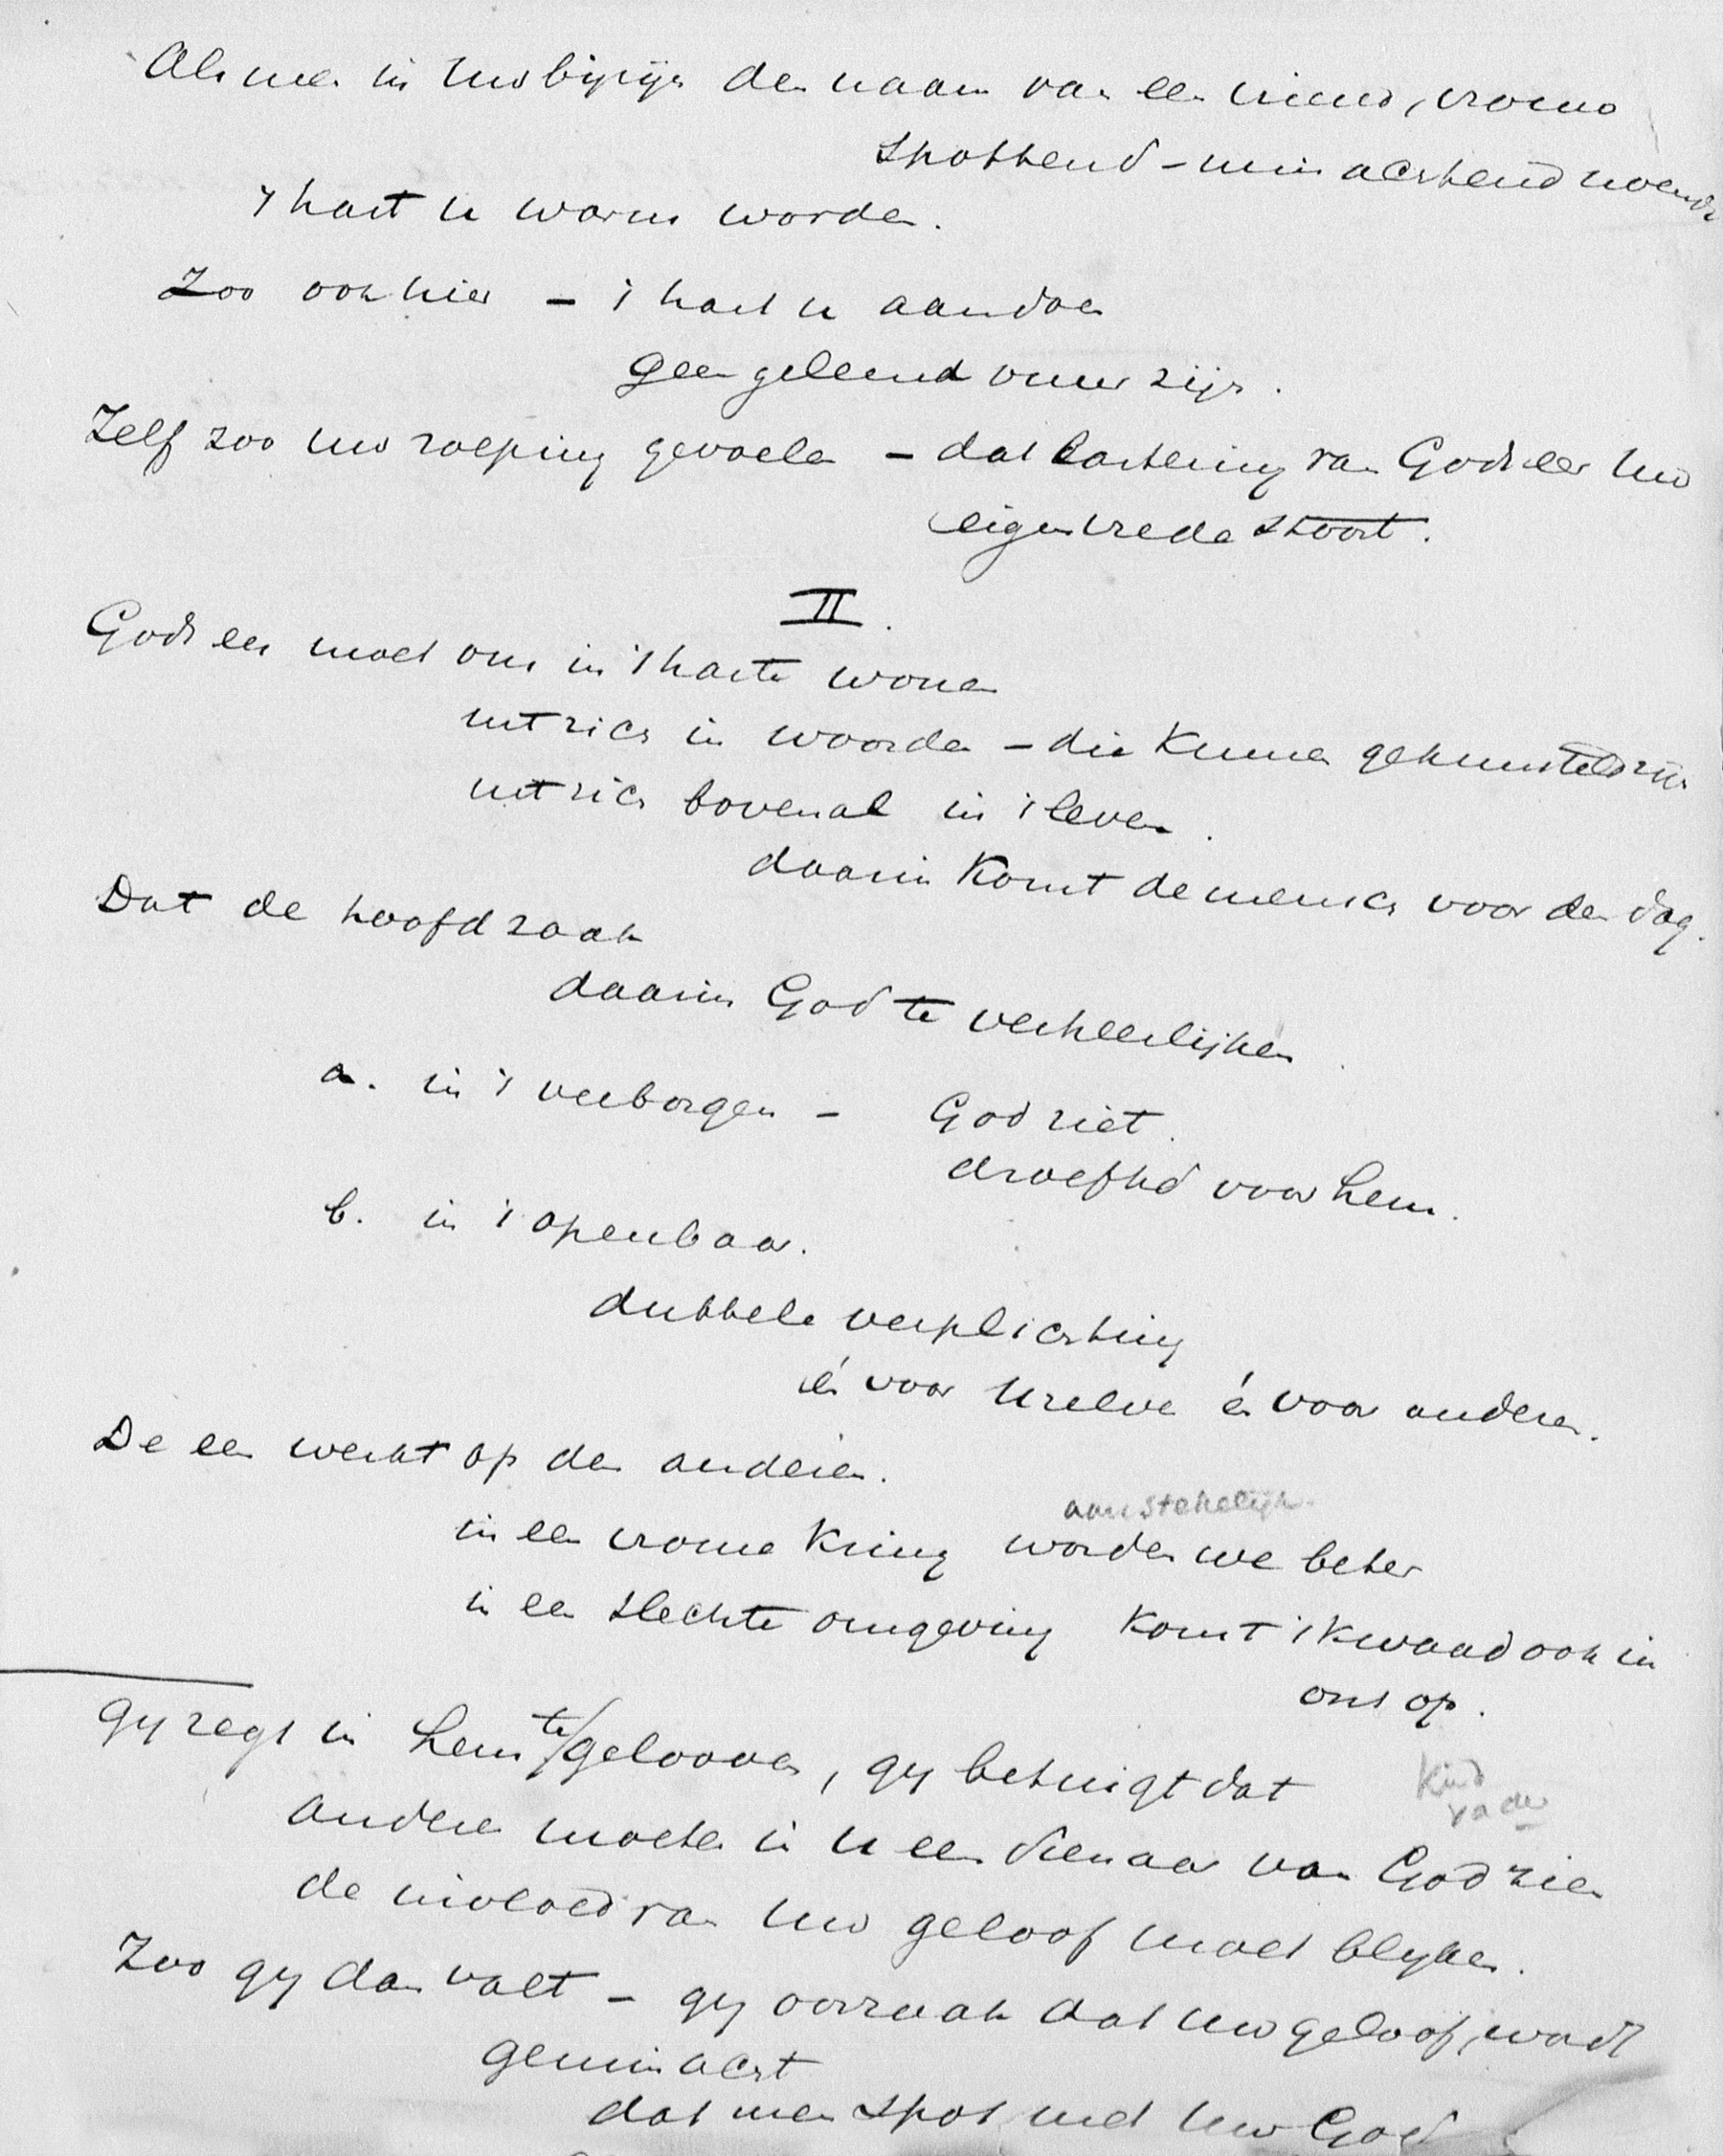 Als men in Uw bijzijn den naam van een vriend, vrouw
spottend - minachtend noemde
't hart u warm worden.
Zoo ook hier - 't hart u aandoen
geen geleend vuur zijn.
Zelf zoo Uw roeping gevoelen - dat lastering van Gods eer Uw
eigen vrede stoort.
II.
Gods eer moet ons in 't harte wonen
uit zich in woorden - die kunnen gekunsteld zijn
uit zich bovenal in 't leven.
daarin komt de mensch voor den dag.
Dat de hoofdzaak
daarin God te verheerlijken
a. in 't verborgen - God ziet.
droefhd voor Hem.
b. in 't openbaar.
dubbele verplichting
én voor Uzelve én voor anderen.
De een werkt op den anderen.
aanstekelijk.
in een vrome kring worden we beter
in een slechte omgeving komt 't kwaad ook in
ons op.
Gy zegt in Hem te gelooven, gy betuigt dat
Kind
vader
anderen moeten in U een dienaar van God zien
de invloed van Uw geloof moet blyken.
Zoo gy dan valt - gy oorzaak dat Uw geloof wordt
geminacht
dat men spot met Uw God